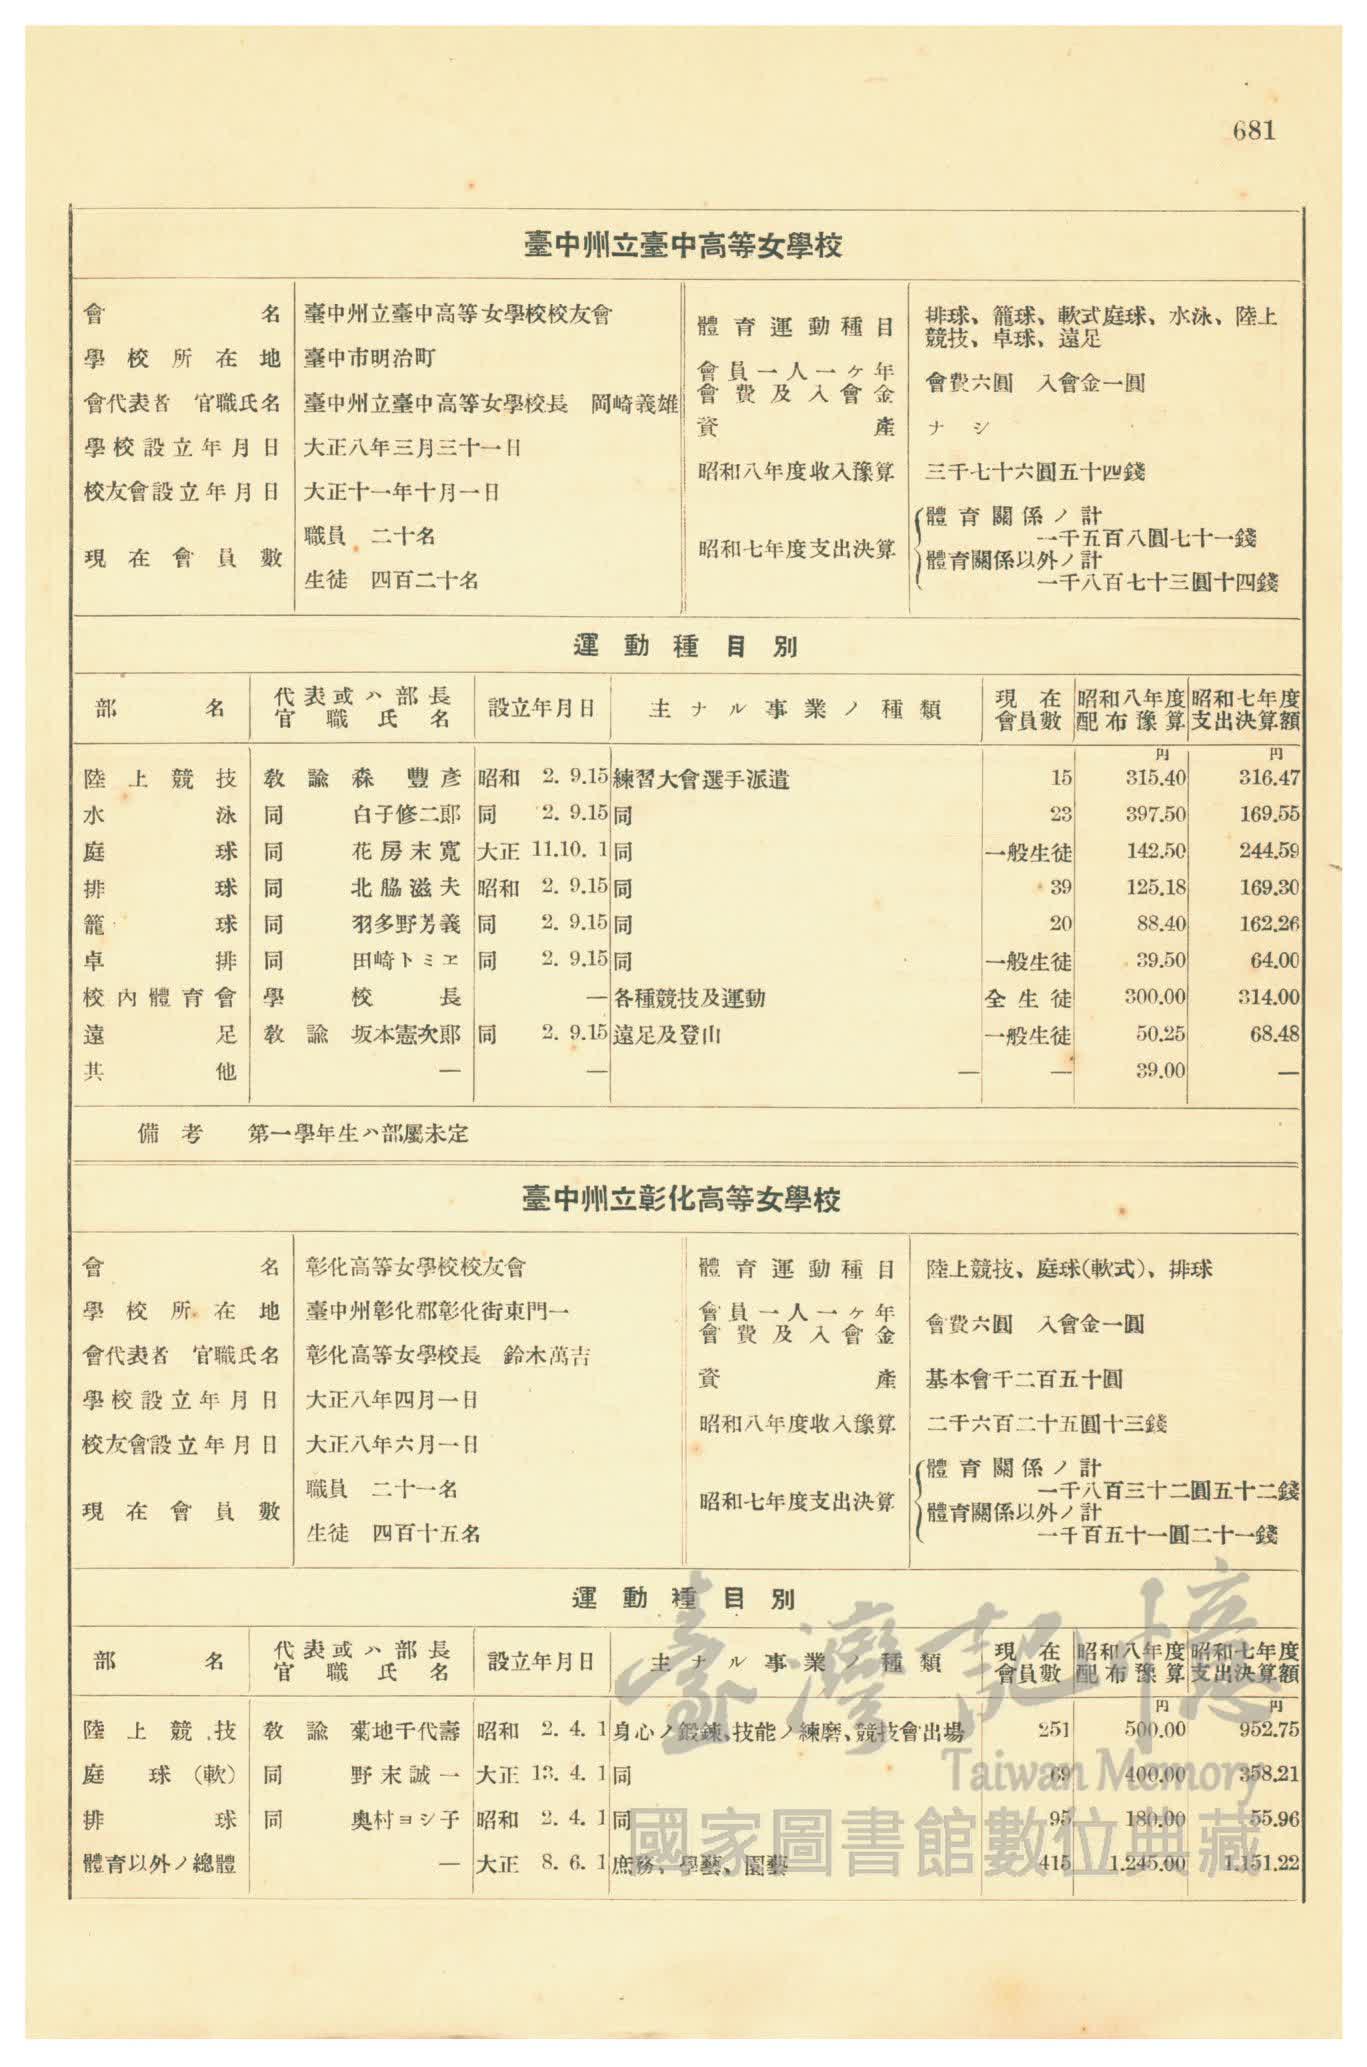 681
臺中州立臺中高等女學校
會名 臺中州立臺中高等女學校校友會
學校所在地 臺中市明治町
會代表者 官職氏名 臺中州立臺中高等女學校長 岡崎義雄
學校設立年月日 大正八年三月三十一日
校友會設立年月日 大正十一年十月一日
現在會員數 職員 二十名
生徒 四百二十名
體育運動種目 排球、籠球、軟式庭球、水泳、陸上
競技、卓球、遠足
會員一人一ヶ年
會費及入會金 會費六圓 入會金一圓
資產 ナシ
昭和八年度收入豫算 三千七十六圓五十四錢
昭和七年度支出決算 體育關係ノ計
一千五百八圓七十一錢
體育關係以外ノ計
一千八百七十三圓十四錢
運動種目別
部名 代表或ハ部長官職氏名 設立年月日 主ナル事業ノ種類 現在會員數 昭和八年度配布豫算 昭和七年度支出決算額
円 円
陸上競技 教諭 森豐彥 昭和 2. 9.15 練習大會選手派遣 15 315.40 316.47
水泳 同 白子修二郎 同 2. 9.15 同 23 397.50 169.55
庭球 同 花房末寬 大正 11.10. 1 同 一般生徒 142.50 244.59
排球 同 北脇滋夫 昭和 2. 9.15 同 39 125.18 169.30
籠球 同 羽多野芳義 同 2. 9.15 同 20 88.40 162.26
卓排 同 田崎トミヱ 同 2. 9.15 同 一般生徒 39.50 64.00
校內體育會 學校長 — 各種競技及運動 全生徒 300.00 314.00
遠足 教諭 坂本憲次郎 同 2. 9.15 遠足及登山 一般生徒 50.25 68.48
其他 — — — — 39.00 —
備考 第一學年生ハ部屬未定
臺中州立彰化高等女學校
會名 彰化高等女學校校友會
學校所在地 臺中州彰化郡彰化街東門一
會代表者 官職氏名 彰化高等女學校長 鈴木萬吉
學校設立年月日 大正八年四月一日
校友會設立年月日 大正八年六月一日
現在會員數 職員 二十一名
生徒 四百十五名
體育運動種目 陸上競技、庭球(軟式)、排球
會員一人一ヶ年
會費及入會金 會費六圓 入會金一圓
資產 基本會千二百五十圓
昭和八年度收入豫算 二千六百二十五圓十三錢
昭和七年度支出決算 體育關係ノ計
一千八百三十二圓五十二錢
體育關係以外ノ計
一千百五十一圓二十一錢
運動種目別
部名 代表或ハ部長官職氏名 設立年月日 主ナル事業ノ種類 現在會員數 昭和八年度配布豫算 昭和七年度支出決算額
円 円
陸上競技 教諭 菊地千代壽 昭和 2. 4. 1 身心ノ鍛鍊、技能ノ練磨、競技會出場 251 500.00 952.75
庭球(軟) 同 野末誠一 大正 13. 4. 1 同 69 400.00 358.21
排球 同 奥村ヨシ子 昭和 2. 4. 1 同 95 180.00 55.96
體育以外ノ總體 — 大正 8. 6. 1 庶務、學藝、園藝 415 1.245.00 1.151.22
臺灣記憶
Taiwan Memory
國家圖書館數位典藏